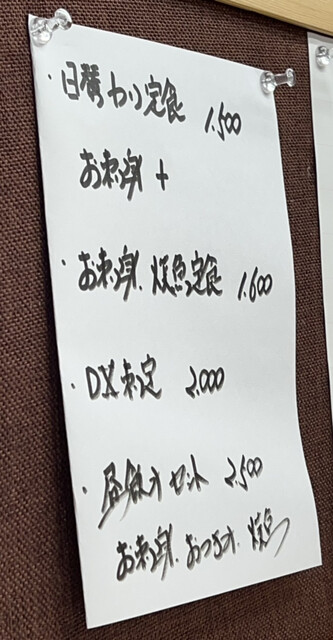 ・日替わり定食 1.500
お刺身+
・お刺身、焼魚定食 1.600
・DX刺定 2.000
・昼飲みセット 2.500
お刺身、おつまみ、焼魚